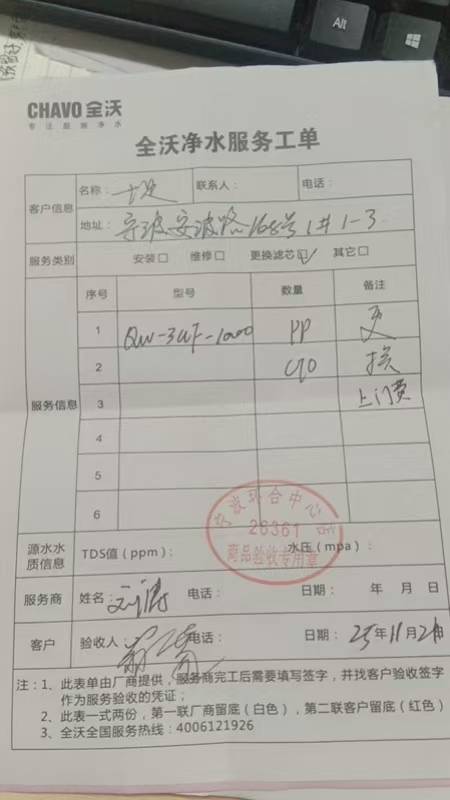 Alt
CHAVO 全沃
专注胶囊净水
全沃净水服务工单
客户信息
名称： 联系人： 电话：
地址：宁波 安波路168号1#1-3
服务类别 安装□ 维修□ 更换滤芯☑ 其它□
服务信息
序号 型号 数量 备注
1 QW-3UF-1000 PP 更
2 CTO 换
3 上门费
4
5
6
宁波环合中心
26361
商品验收专用章
源水水质信息 TDS值（ppm）： 水压（mpa）：
服务商 姓名： 电话： 日期： 年 月 日
客户 验收人： 电话： 日期： 25年11月2日
注：1、此表单由厂商提供，服务商完工后需要填写签字，并找客户验收签字
作为服务验收的凭证；
2、此表一式两份，第一联厂商留底（白色），第二联客户留底（红色）
3、全沃全国服务热线：4006121926